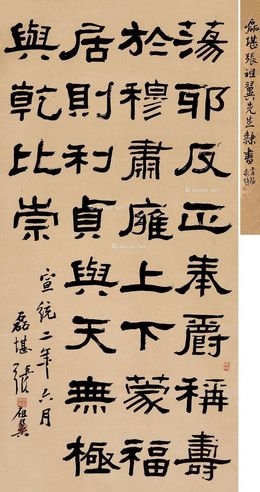 蕩邪反正奉爵稱壽
於穆肅雍上下蒙福
居則利貞與天無極
與乾比崇
宣統二年六月
磊堪張祖翼
磊堪張祖翼先生隸書